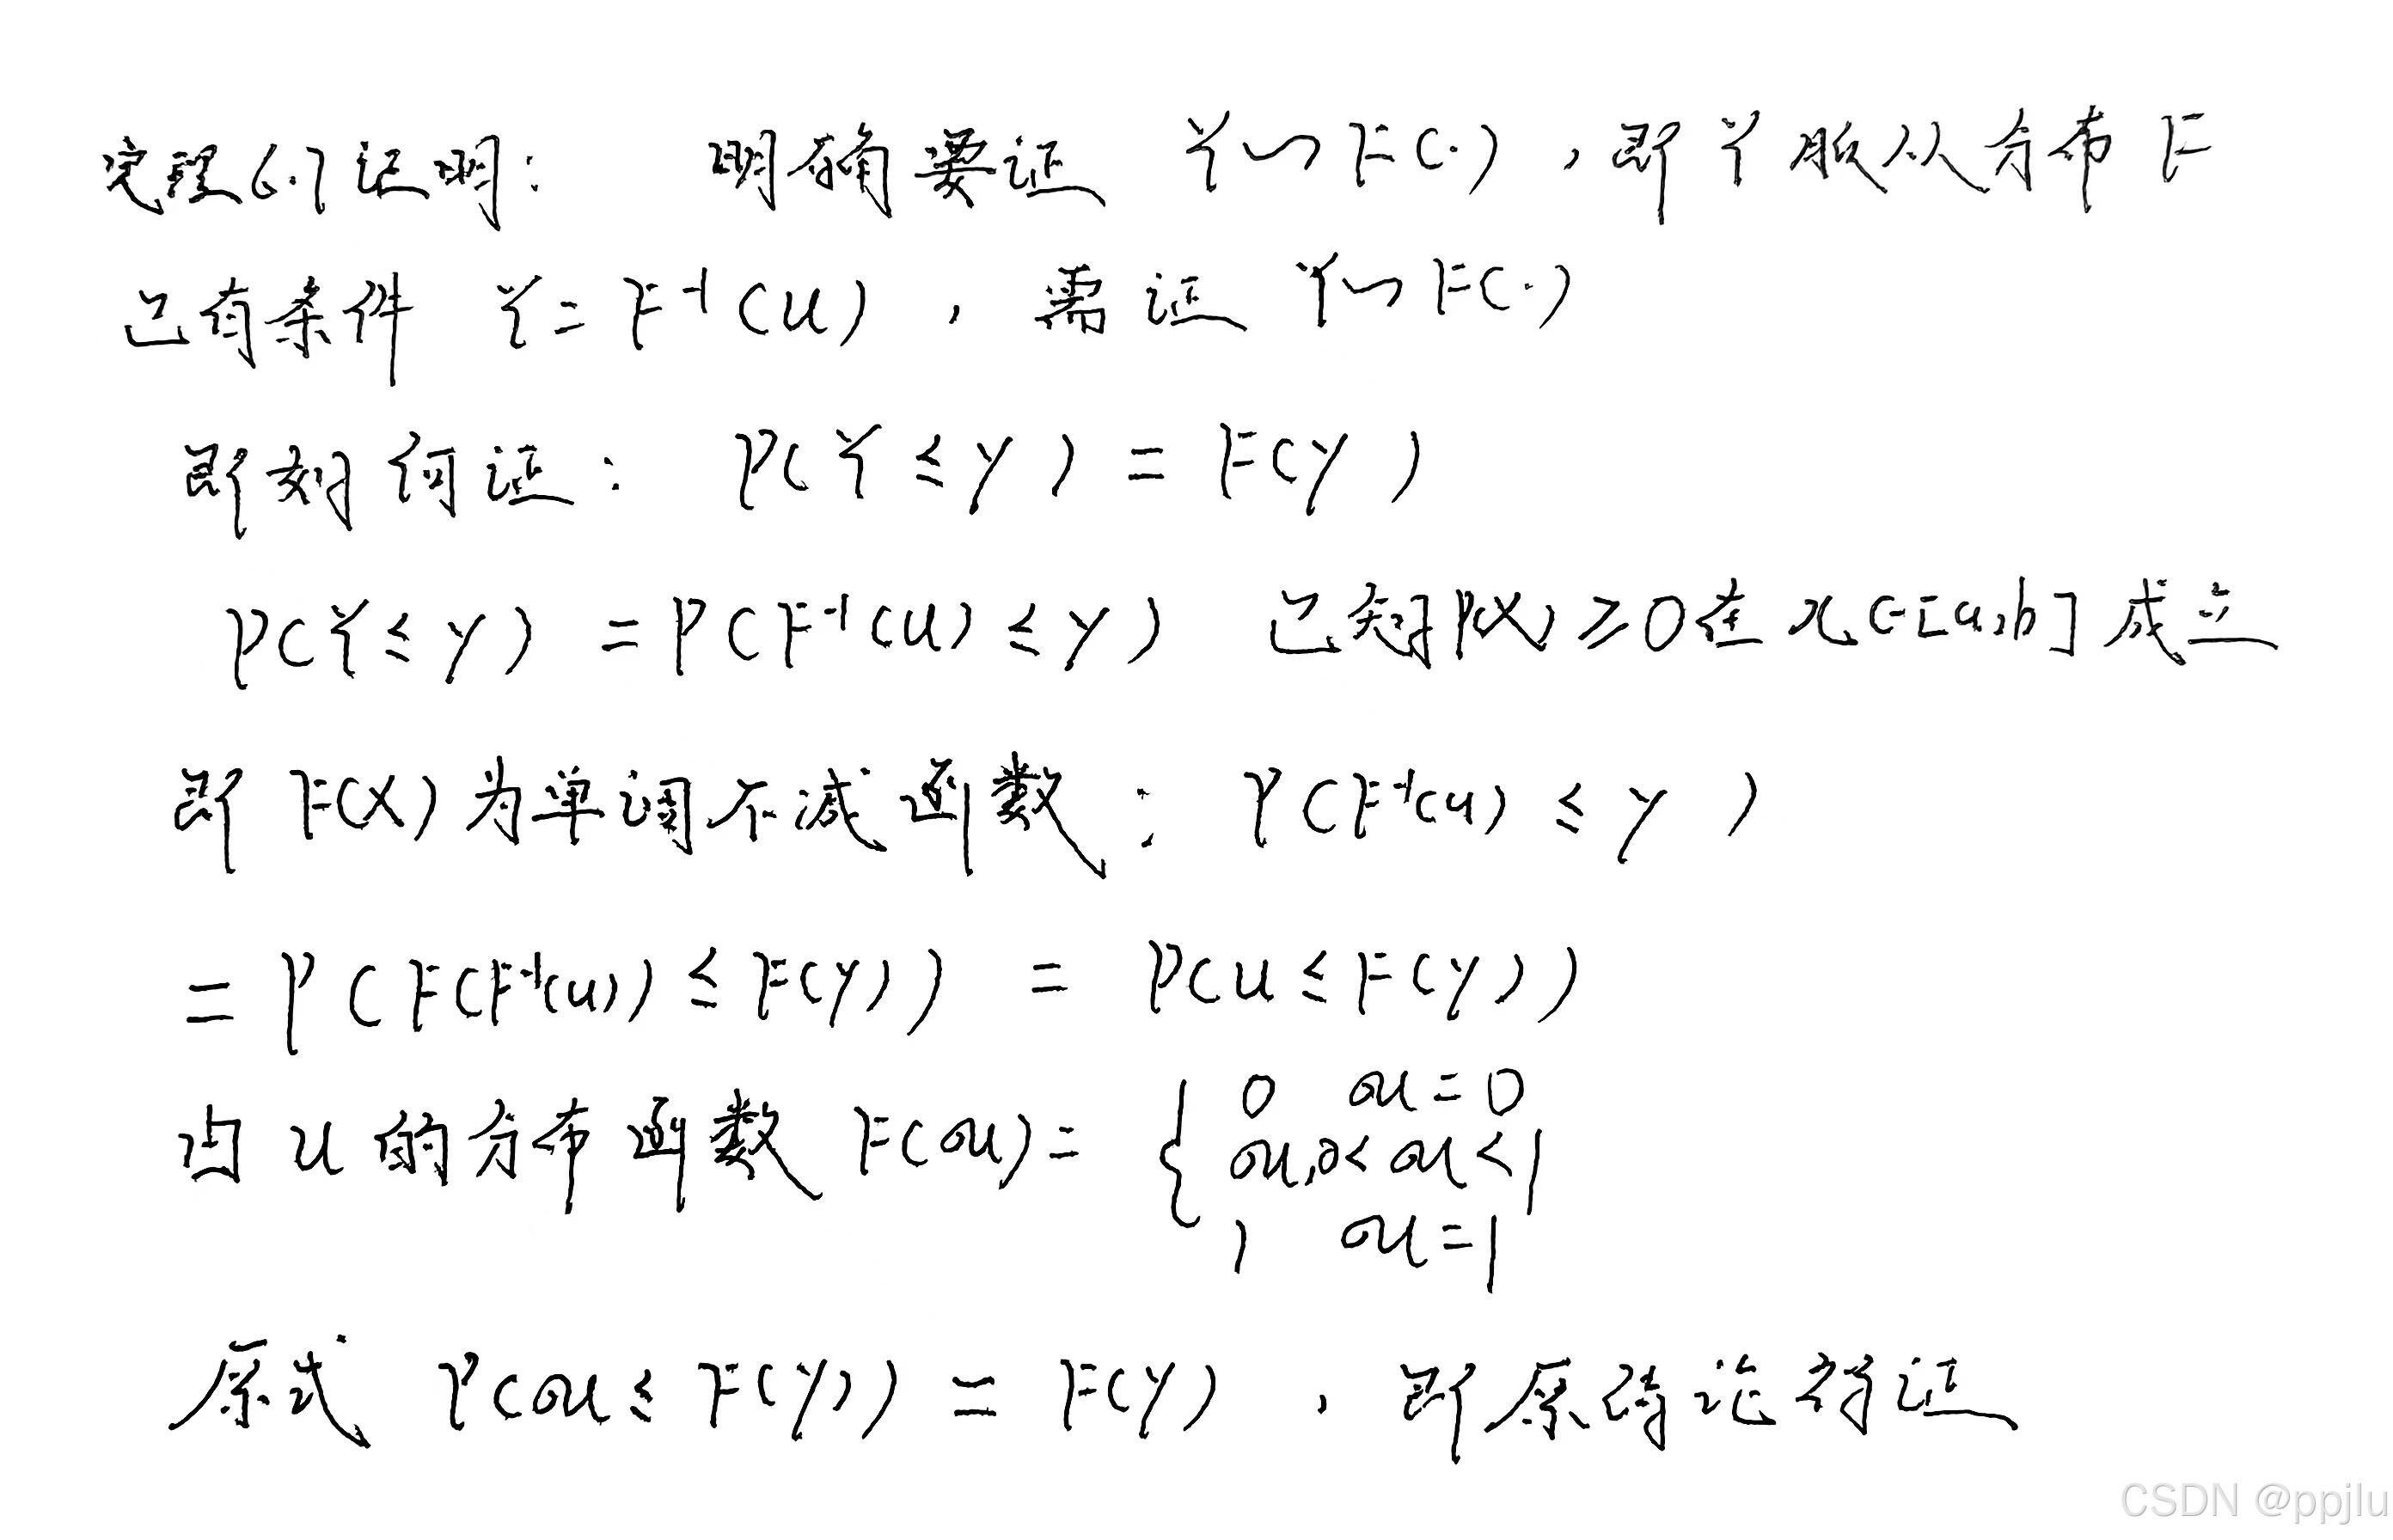 定理6.1证明: 明确要证 Y~F(·), 即Y服从分布F
已有条件 Y=F⁻¹(U), 需证 Y~F(·)
即如何证: P(Y≤y)=F(y)
P(Y≤y)=P(F⁻¹(U)≤y) 已知p(x)≥0在x∈[a,b]成立
即F(x)为单调不减函数: P(F⁻¹(u)≤y)
=P(F(F⁻¹(u))≤F(y)) = P(u≤F(y))
由u的分布函数F(u)= { 0 u=0
u,0<u<1
1 u=1
原式 P(u≤F(y))=F(y), 即原结论得证
CSDN @ppjlu